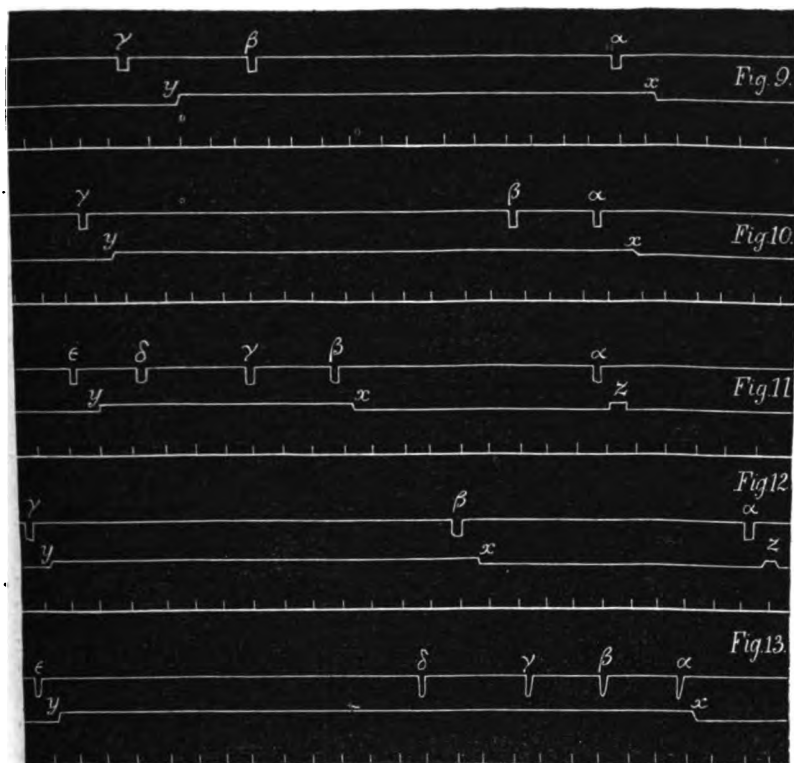 γ β α
y x Fig. 9.
γ β α
y x Fig. 10.
ϵ δ γ β α
y x z Fig. 11
Fig. 12
γ β α
y x z
Fig. 13.
ϵ δ γ β α
y x